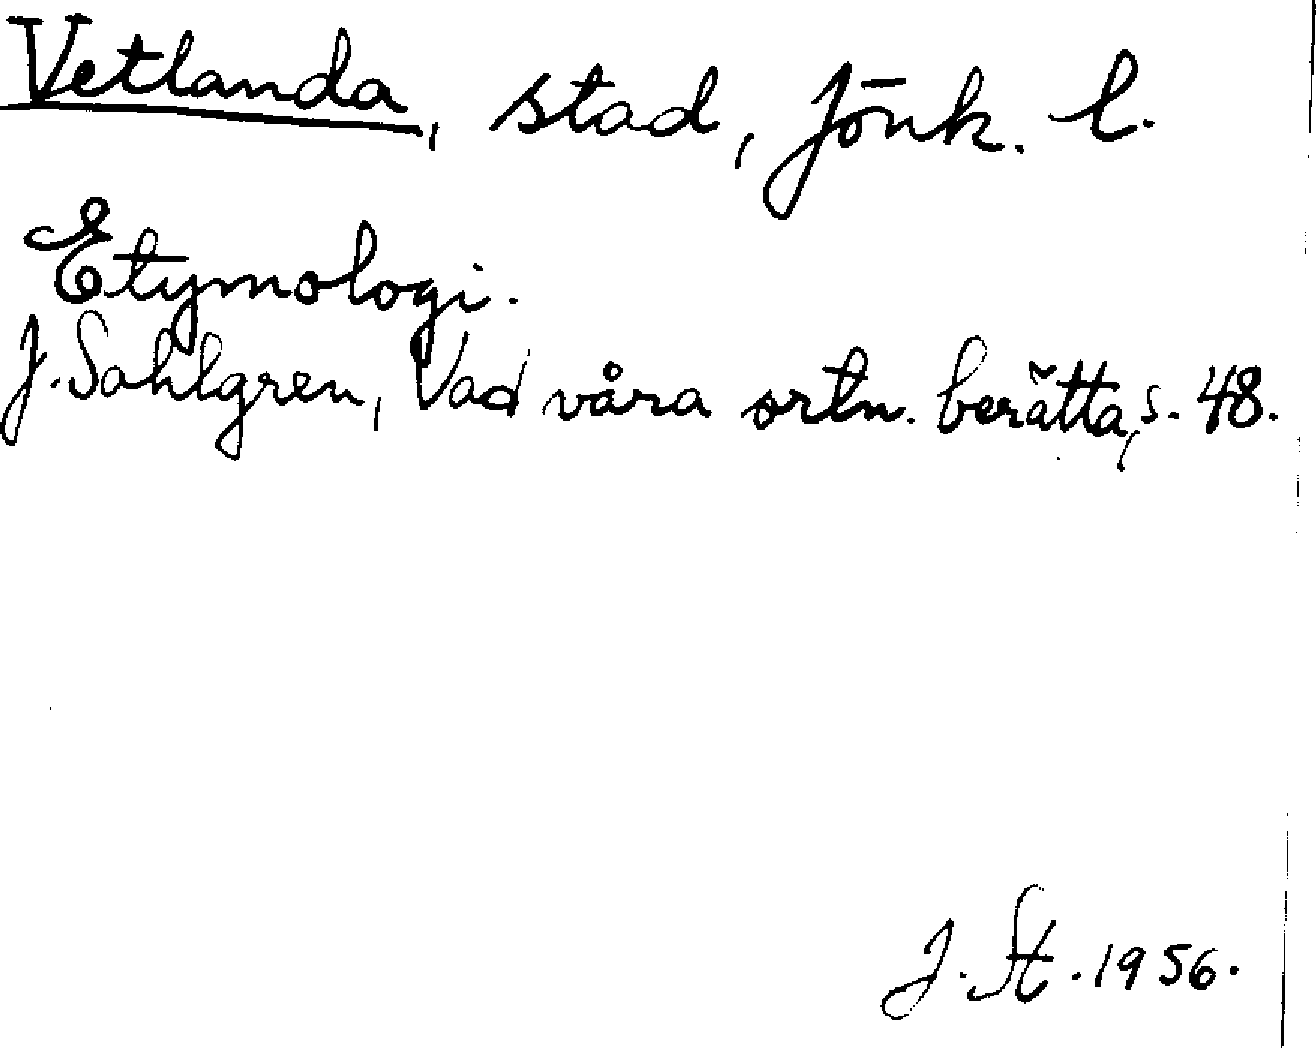 Vetlanda, stad, Jönk. l.
Etymologi.
J. Sahlgren, Vad våra ortn. berätta, s. 48.
J. St. 1956.